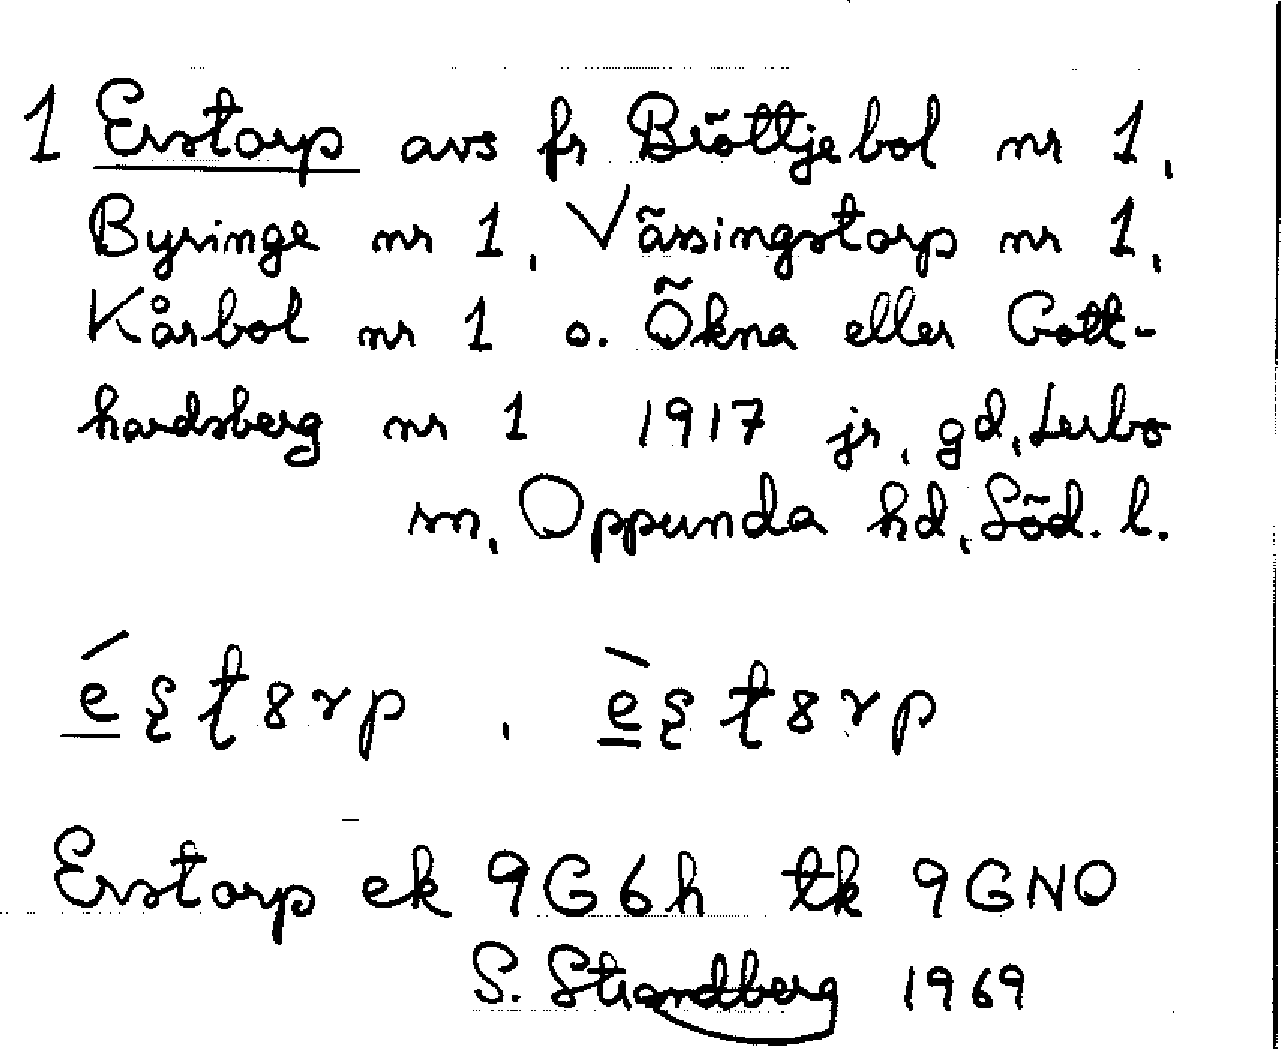 1 Erstorp avs fr Bröttjebol nr 1,
Byringe nr 1, Vässingstorp nr 1,
Kårbol nr 1 o. Ökna eller Gott-
hardsberg nr 1 1917 jr, gd, Lerbo
sn, Oppunda hd, Söd. l.
Erstorp ek 9G6h tk 9GNO
S. Strandberg 1969